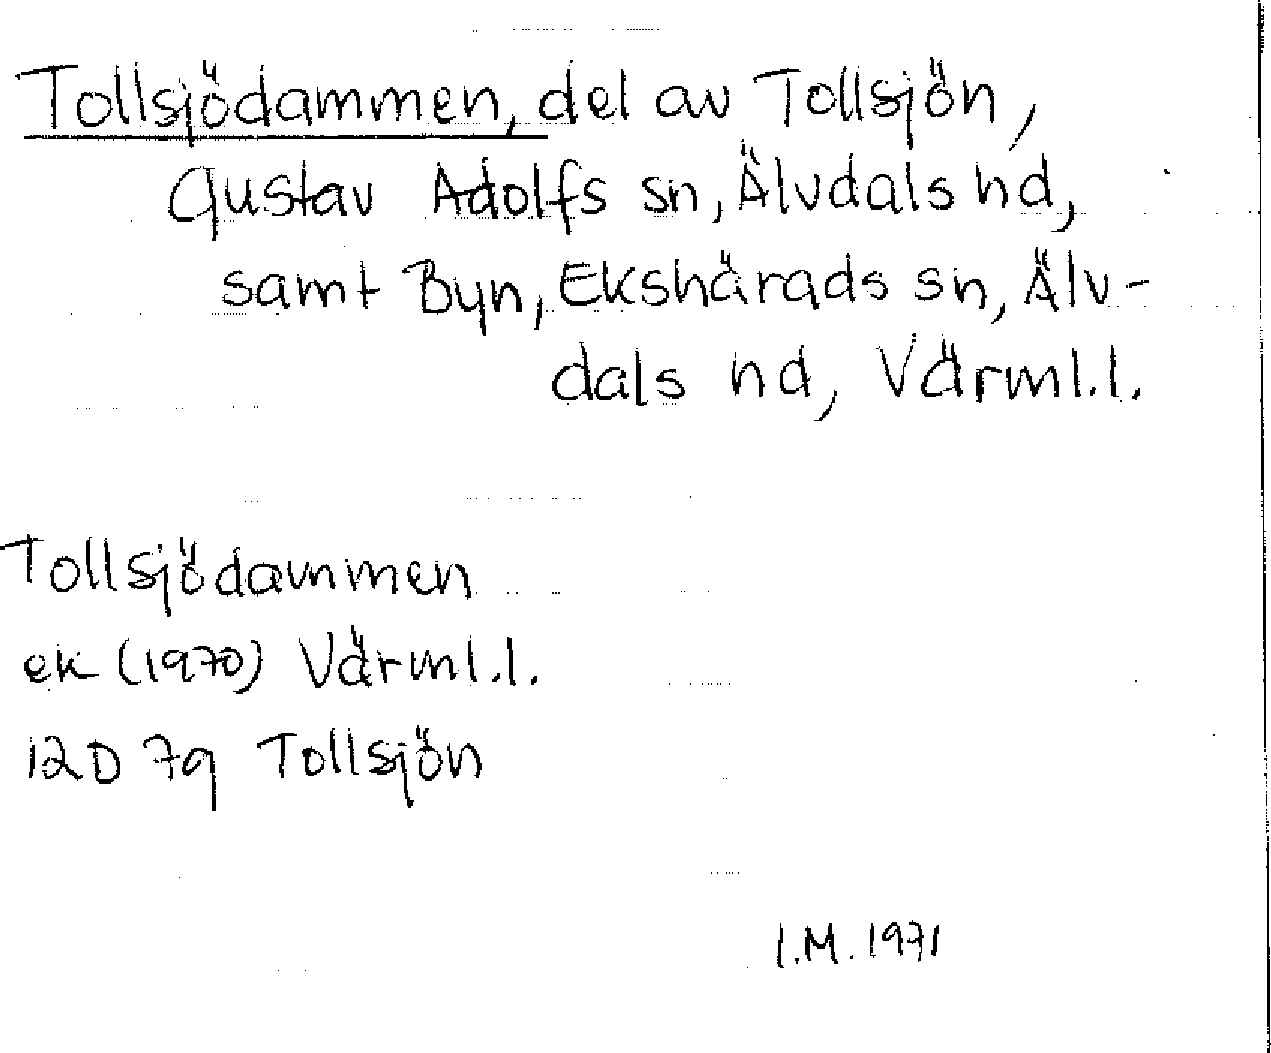 Tollsjödammen, del av Tollsjön,
Gustav Adolfs sn, Älvdals hd,
samt Byn, Ekshärads sn, Älv-
dals hd, Värml.l.
Tollsjödammen
ek (1970) Värml.l.
12D 7g Tollsjön
I.M. 1971